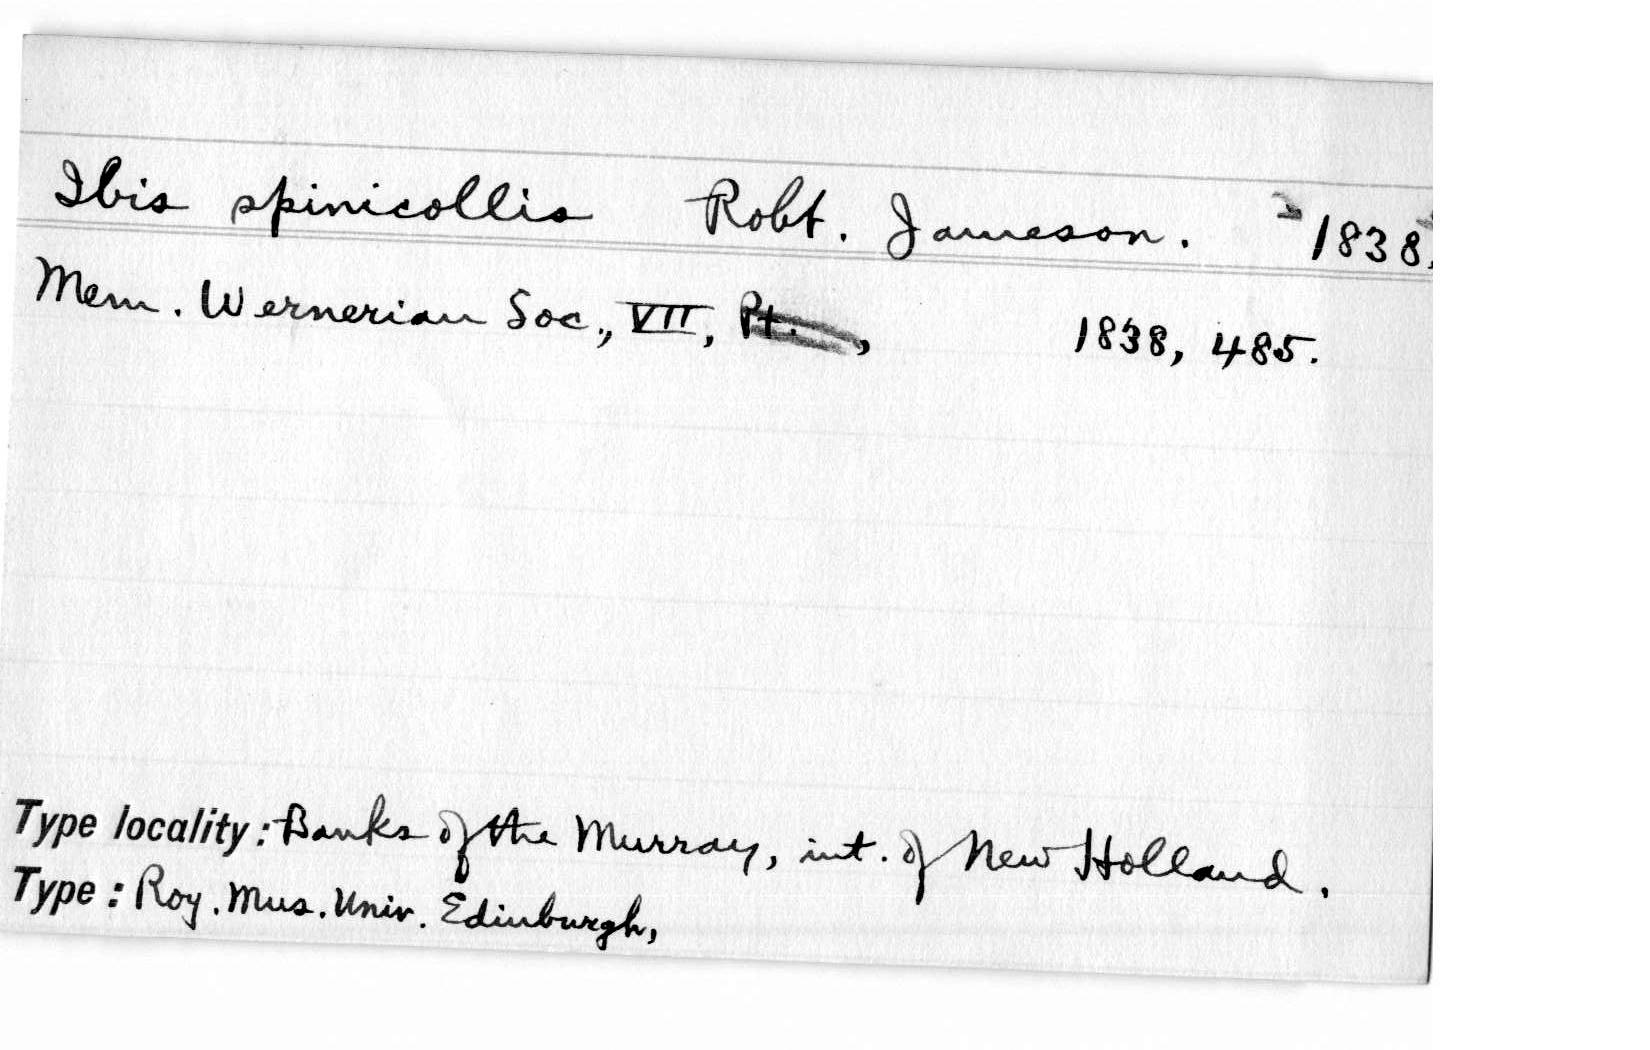 Ibis spinicollis Robt. Jameson. 1838,
Mem. Wernerian Soc., VII, Pt. , 1838, 485.
Type locality: Banks of the Murray, int. of New Holland.
Type: Roy. Mus. Univ. Edinburgh,